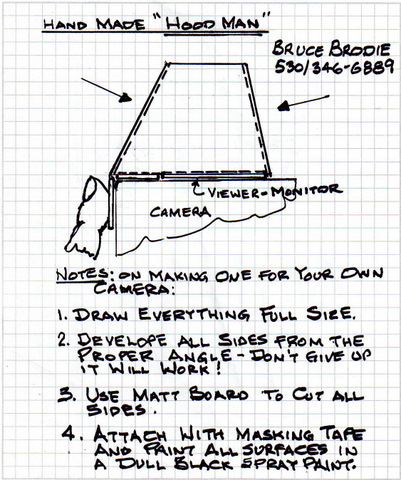 HAND MADE "HOOD MAN"
BRUCE BRODIE
530/346-6889
VIEWER-MONITOR
CAMERA
NOTES: ON MAKING ONE FOR YOUR OWN
CAMERA:
1. DRAW EVERYTHING FULL SIZE.
2. DEVELOPE ALL SIDES FROM THE
PROPER ANGLE - DON'T GIVE UP
IT WILL WORK!
3. USE MATT BOARD TO CUT ALL
SIDES.
4. ATTACH WITH MASKING TAPE
AND PAINT ALL SURFACES IN
A DULL BLACK SPRAY PAINT.